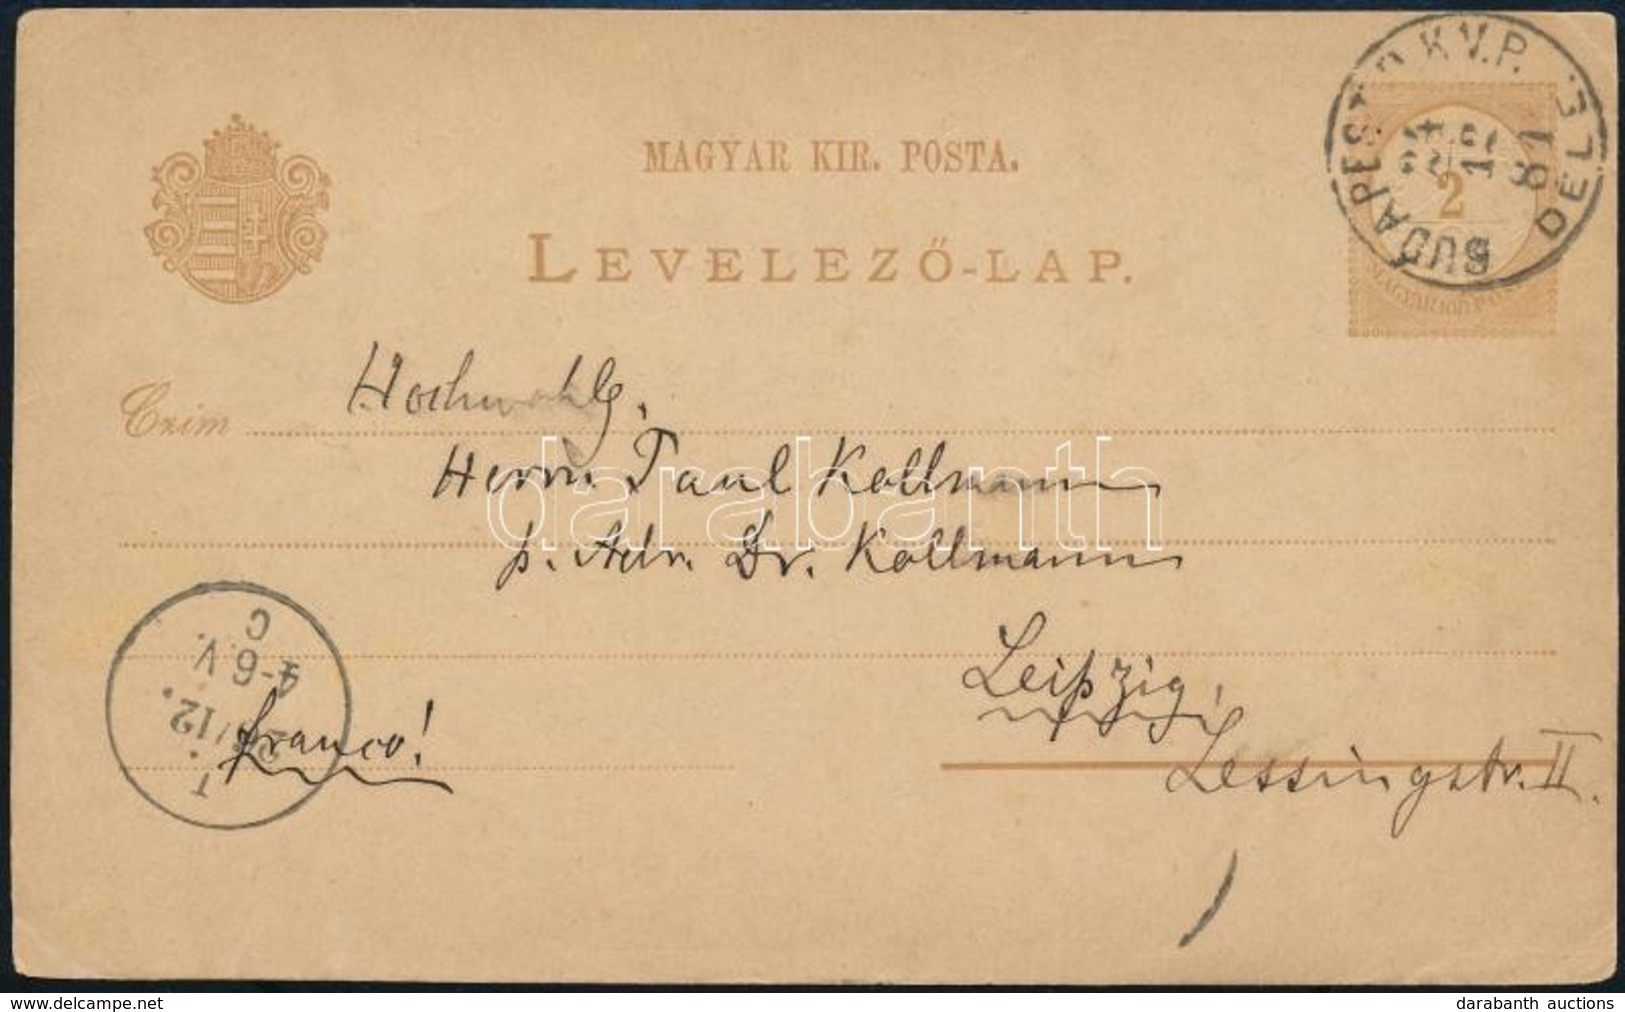 MAGYAR KIR. POSTA.
LEVELEZŐ-LAP.
BUDAPEST K.V.P. DÉL
24
12
81
2
MAGYAR KIR. POSTA
Czim
Hochwohlg.
Herrn Paul Kollmann
p. Adr. Dr. Kollmann
Leipzig,
Lessingstr. II.
franco!
T.
/12.
4-6.V.
C
darabanth
www.darabanth.com
darabanth auctions